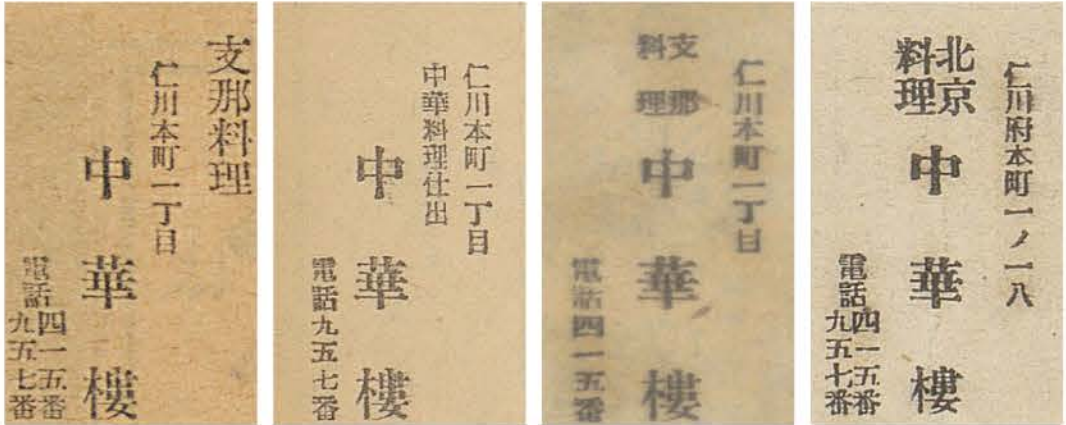 支那料理
仁川本町一丁目
中華樓
電話
四一五番
九五七番
仁川本町一丁目
中華料理仕出
中華樓
電話九五七番
仁川本町一丁目
支那
料理
中華樓
電話四一五番
仁川府本町一ノ一八
北京
料理
中華樓
電話
四一五番
九五七番